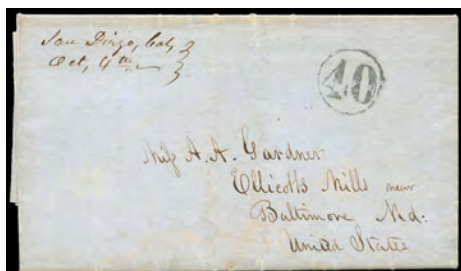 San Diego, Cal,
Oct, 4th
40
Miss A. A. Gardner
Ellicotts Mills near
Baltimore Md:
United States